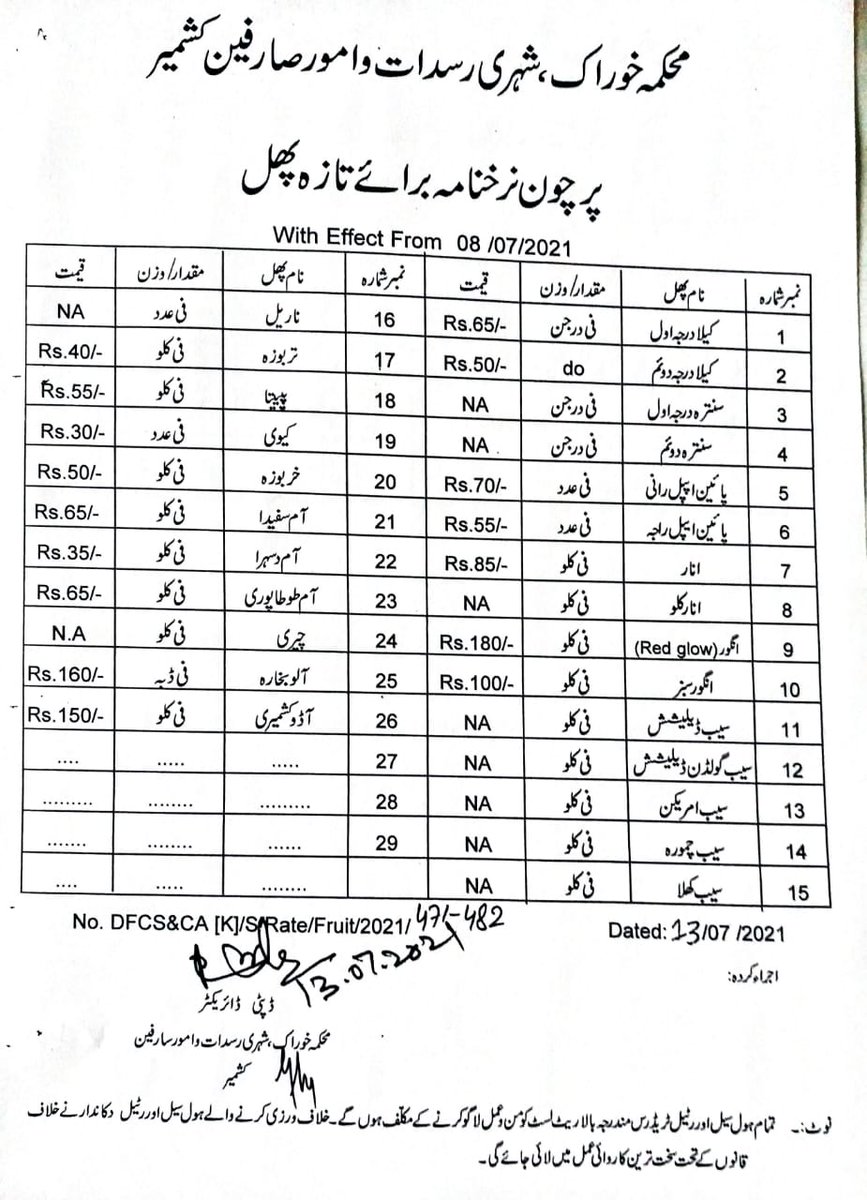 محکمہ خوراک، شہری رسدات و امور صارفین کشمیر
پرچون نرخنامہ برائے تازہ پھل
With Effect From 08 /07/2021
نمبر شمارہ نام پھل مقدار/وزن قیمت نمبر شمارہ نام پھل مقدار/وزن قیمت
1 کیلا درجہ اول فی درجن Rs.65/- 16 ناریل فی عدد NA
2 کیلا درجہ دوئم do Rs.50/- 17 تربوزہ فی کلو Rs.40/-
3 سنترہ درجہ اول فی درجن NA 18 پپیتا فی کلو Rs.55/-
4 سنترہ دوئم فی درجن NA 19 کیوی فی عدد Rs.30/-
5 پائین ایپل رانی فی عدد Rs.70/- 20 خربوزہ فی کلو Rs.50/-
6 پائین ایپل راجہ فی عدد Rs.55/- 21 آم سفیدا فی کلو Rs.65/-
7 انار فی کلو Rs.85/- 22 آم دسہرا فی کلو Rs.35/-
8 انار کلو فی کلو NA 23 آم طوطا پوری فی کلو Rs.65/-
9 انگور (Red glow) فی کلو Rs.180/- 24 چیری فی کلو N.A
10 انگور سبز فی کلو Rs.100/- 25 آلو بخارہ فی ڈبہ Rs.160/-
11 سیب ڈیلیشش فی کلو NA 26 آڈو کشمیری فی کلو Rs.150/-
12 سیب گولڈن ڈیلیشش فی کلو NA 27 ..... ..... ....
13 سیب امریکن فی کلو NA 28 ......... ........ .........
14 سیب چمورہ فی کلو NA 29 ...... ........ .......
15 سیب کھلا فی کلو NA ........ ..... ....
No. DFCS&CA [K]/S/Rate/Fruit/2021/471-482 Dated: 13/07 /2021
13.07.2021
اجراء کردہ:
ڈپٹی ڈائریکٹر
محکمہ خوراک، شہری رسدات و امور سارفین
کشمیر
نوٹ:۔ تمام ہول سیل اور رٹیل ٹریڈرس مندرجہ بالا ریٹ لسٹ کو من و عمل لاگو کرنے کے مکلّف ہوں گے۔ خلاف ورزی کرنے والے ہول سیل اور رٹیل دکاندار نے خلاف
قانون کے تحت سخت ترین کاروائی عمل میں لائی جائے گی۔